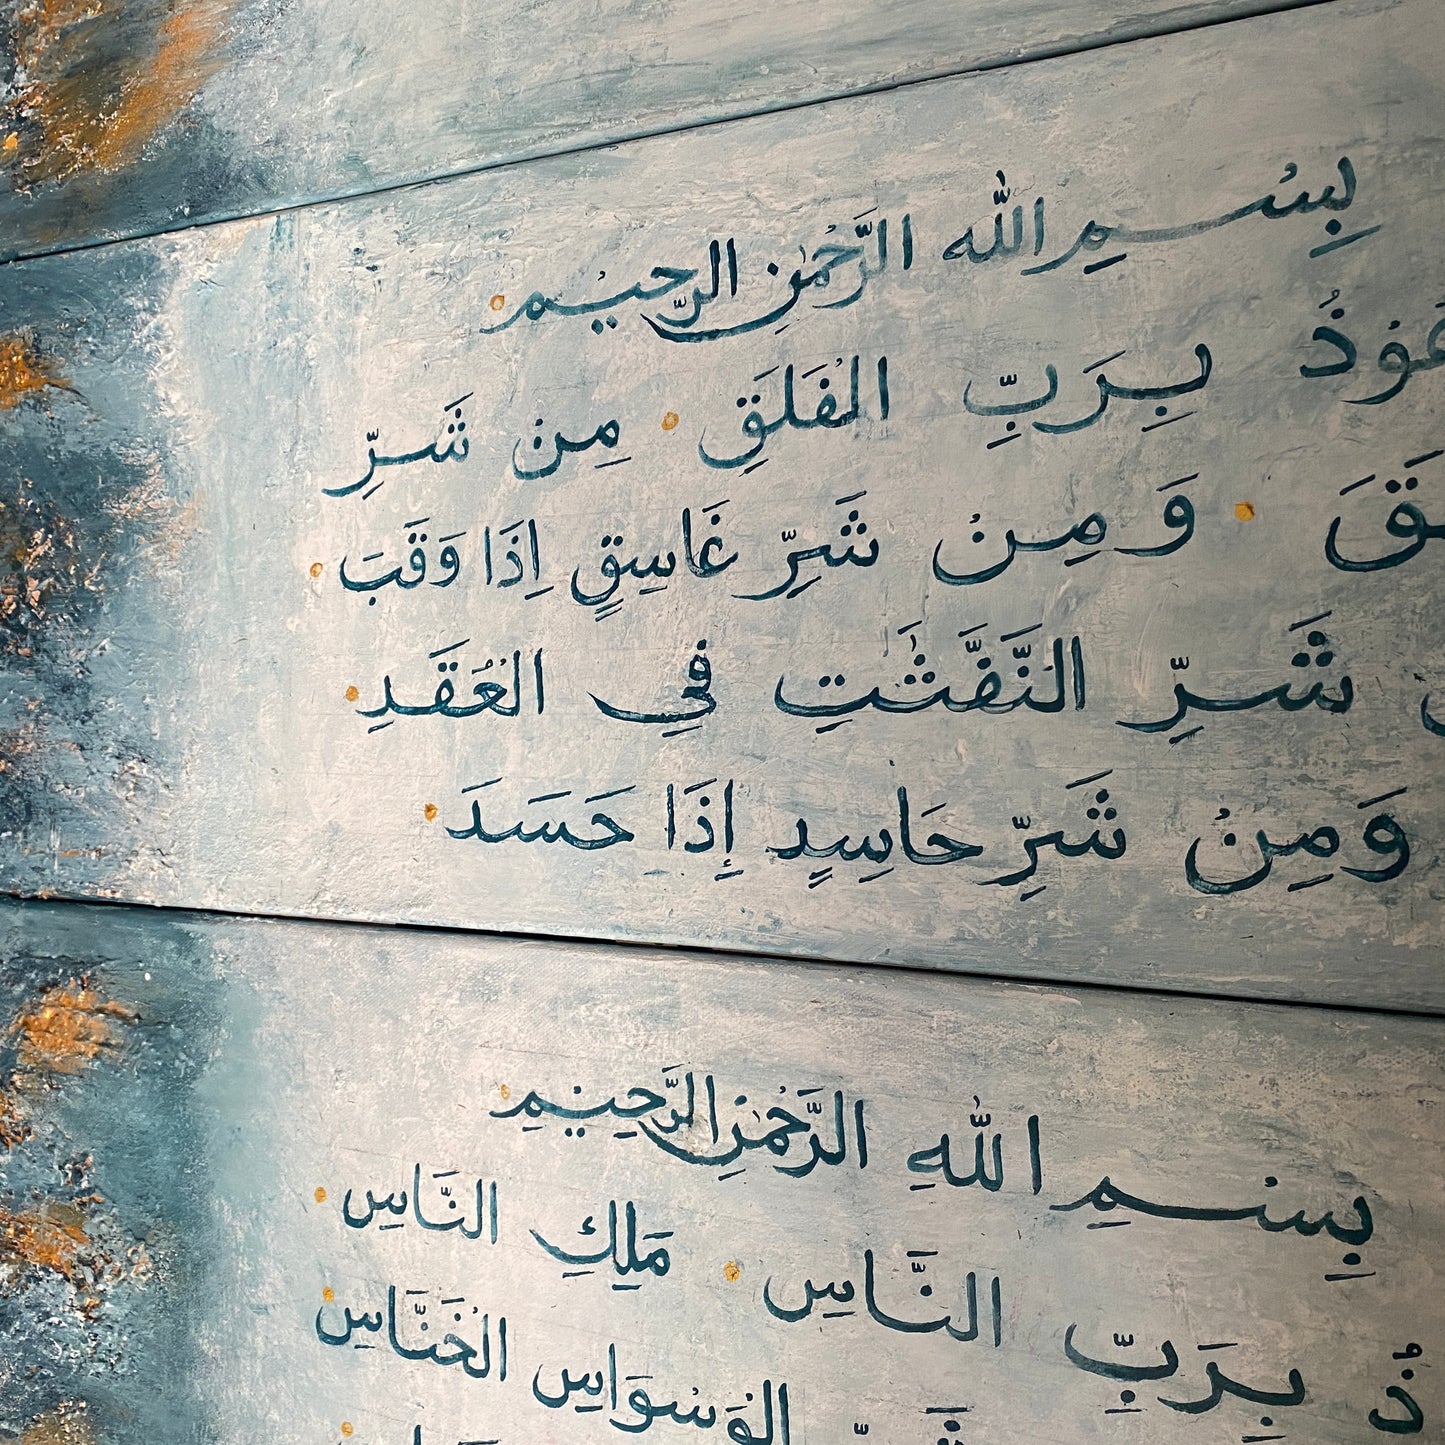 بِسْمِ اللّٰه الرَّحْمٰنِ الرَّحِيْم
بِرَبِّ الْفَلَقِ مِنْ شَرِّ
وَمِنْ شَرِّ غَاسِقٍ اِذَا وَقَبَ
شَرِّ النَّفّٰثٰتِ فِي الْعُقَدِ
وَمِنْ شَرِّ حَاسِدٍ إِذَا حَسَدَ
بِسْمِ اللّٰهِ الرَّحْمٰنِ الرَّحِيْمِ
بِرَبِّ النَّاسِ مَلِكِ النَّاسِ
الْوَسْوَاسِ الْخَنَّاسِ